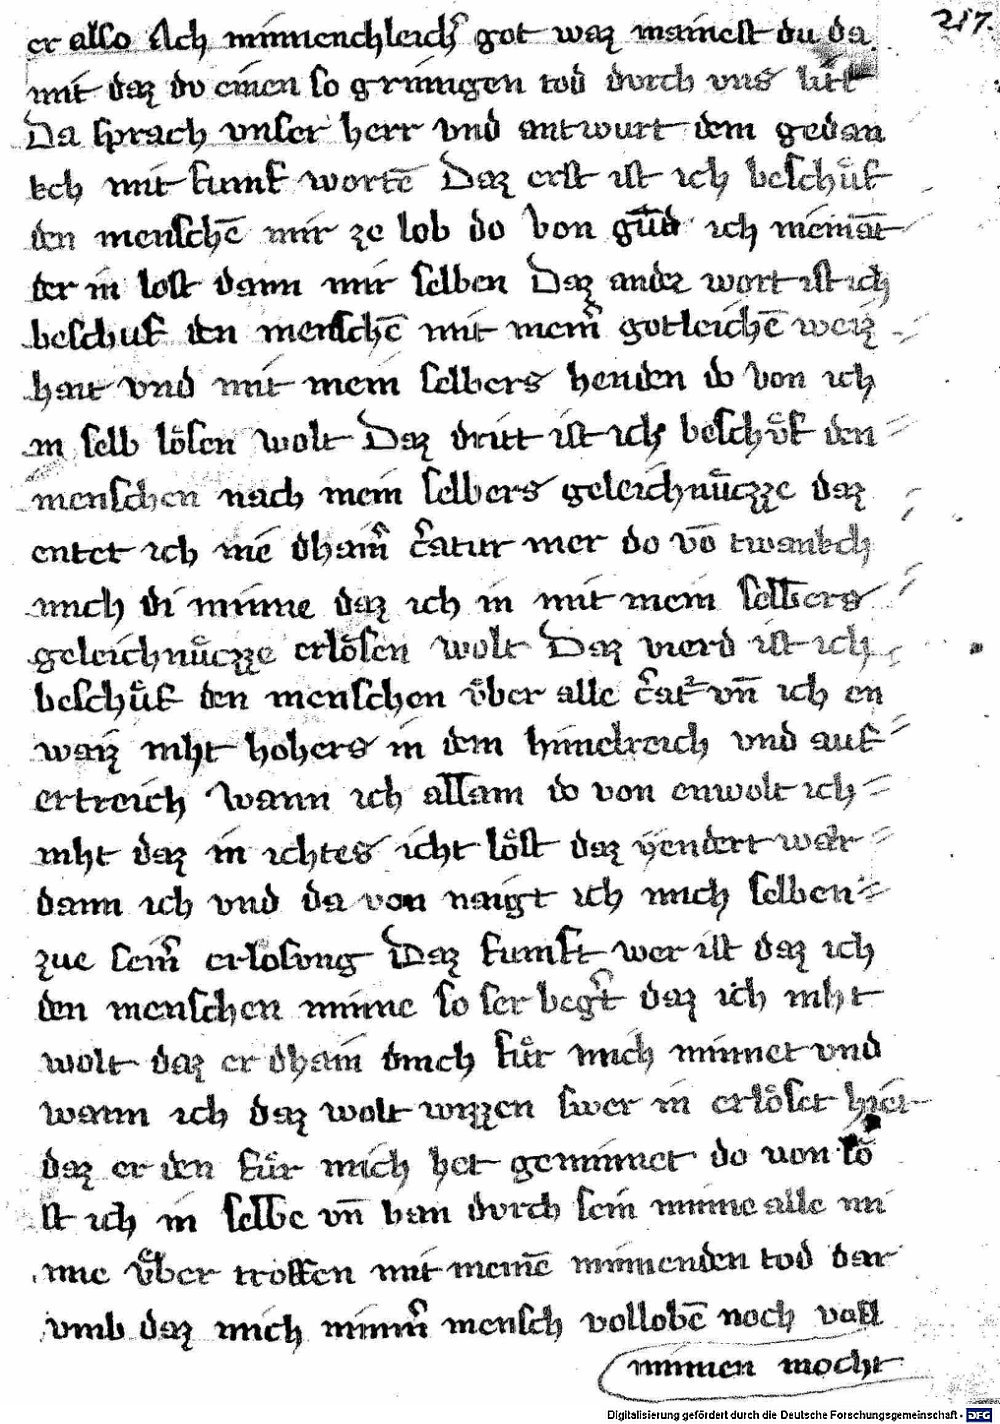 217.
er also Ach minnenchleich͛ got waz mainest du da
mit daz du einen so grimigen tod durch vns litt
Da sprach vnser herr vnd antwurt dem gedan
kch mit fumf wortē Daz erst ist ich beschůf
den menschē mir ze lob do von gūd ich niemāt
der in lost dann mir selben Daz ander wort ist ich
beschuf den menschē mit mein͛ gotleichē weiz
hait vnd mit mein selbers henden do von ich
in selb lôsen wolt Daz dritt ist ich beschůf den
menschen nach mein selbers geleichnůzze daz
entet ich nie dhain͛ c͛atur mer do vō twankch
mich di minne daz ich in mit mein selbers
geleichnůzze erlôsen wolt Daz vierd ist ich
beschůf den menschen ůber alle c͛atur vn̄ ich en
waiz niht hohers in dem himelreich vnd auf
ertreich wann ich allain do von enwolt ich
niht daz in ichtes icht lôst daz yendert wär
dann ich vnd da von naigt ich mich selben
zue sein͛ erlosung Daz fumft wer ist daz ich
den menschen minne so ser beg͛t daz ich niht
wolt daz er dhain dinch für mich minnet vnd
wann ich daz wolt wizzen swer in erlôset hiet
daz er den für mich het geminnet do von lô
st ich in selbē vn̄ han durch sein minne alle mi
nne ůber troffen mit meinē minnenden tod dar
vmb daz mich nimm͛ mensch vollobē noch voll
minnen mocht
Digitalisierung gefördert durch die Deutsche Forschungsgemeinschaft - DFG